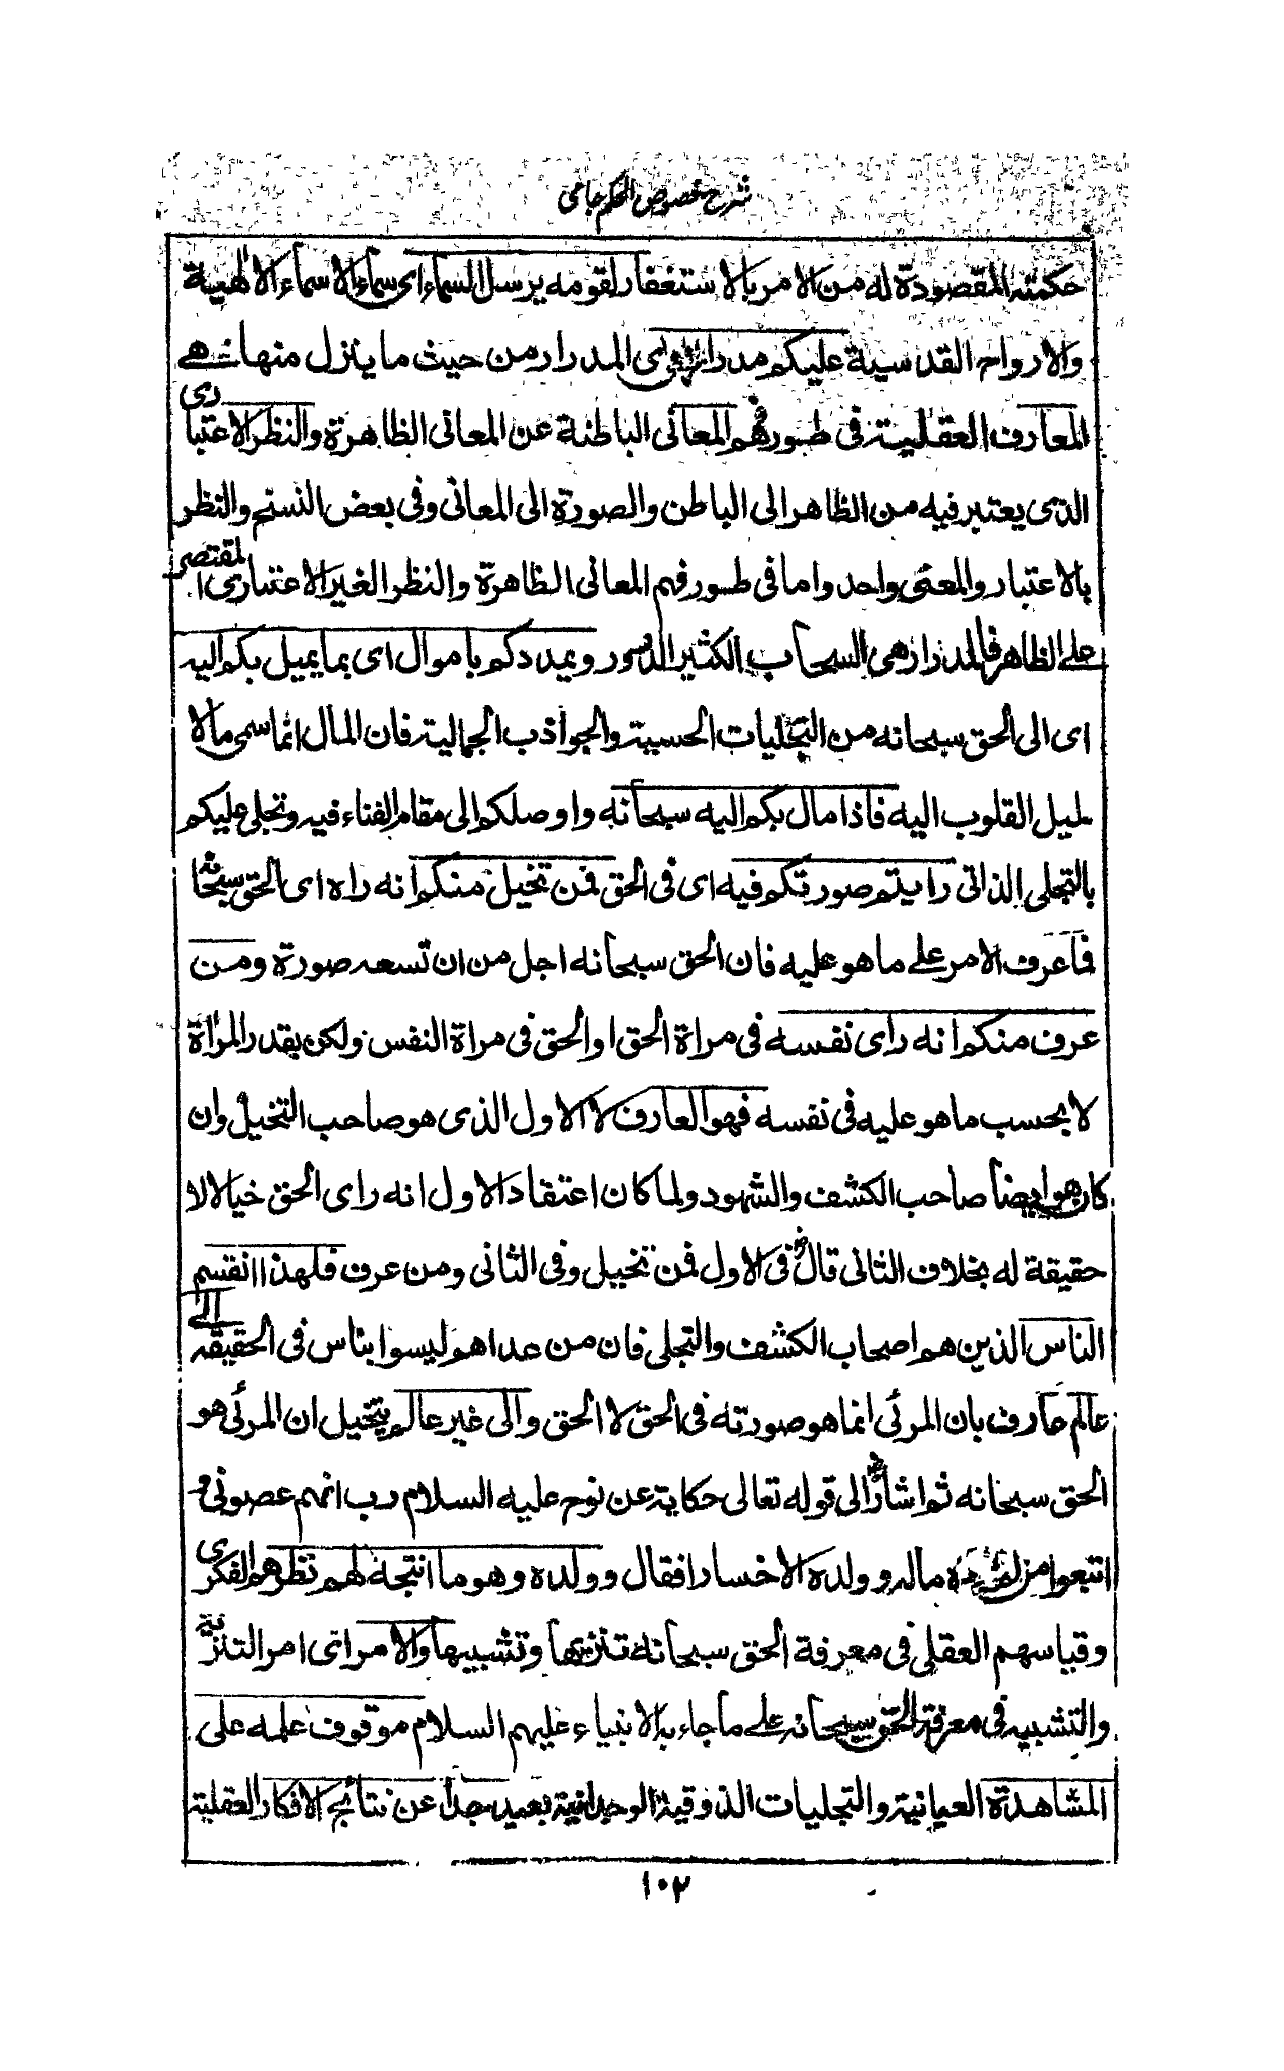 شرح فصوص الحكم جامی
حكمته المقصودة له من الامر بالاستغفار لقومه يرسل السماء ای سماء الاسماء الالهية
والارواح القدسية عليكم مدرارا ای المدرار من حيث ما ينزل منها هے
المعارف العقلية فی طور فهم المعانی الباطنة عن المعانی الظاهرة والنظر الاعتباری
الذی يعتبر فيه من الظاهر الی الباطن والصورة الی المعانی وفی بعض النسخ والنظر
بالاعتبار والمعنی واحد واما فی طور فهم المعانی الظاهرة والنظر الغير الاعتباری المقتصر
علے الظاهر فالمدرار هی السحاب الكثير الدرور ويمددكم باموال ای بما يميل بكم اليه
ای الی الحق سبحانه من التجليات الحسية والجواذب الجمالية فان المال انما سمی مالا
لميل القلوب اليه فاذا مال بكم اليه سبحانه واوصلكم الی مقام الفناء فيه وتجلی عليكم
بالتجلی الذاتی رايتم صورتكم فيه ای فی الحق فمن تخيل منكم انه راه ای الحق سبحانه
فما عرف الامر علے ما هو عليه فان الحق سبحانه اجل من ان تسعه صورة ومن
عرف منكم انه رای نفسه فی مراة الحق او الحق فی مراة النفس ولكن بقدر المراة
لا بحسب ما هو عليه فی نفسه فهو العارف لا الاول الذی هو صاحب التخيل وان
كان هو ايضا صاحب الكشف والشهود ولما كان اعتقاد الاول انه رای الحق خيالا لا
حقيقة له بخلاف الثانی قال رض فی الاول فمن تخيل وفی الثانی ومن عرف فلهذا انقسم
الناس الذين هم اصحاب الكشف والتجلی فان من عداهم ليسوا بناس فی الحقيقة الی
عالم عارف بان المرئی انما هو صورته فی الحق لا الحق والی غير عالم يتخيل ان المرئی هو
الحق سبحانه ثم اشار رض الی قوله تعالی حكاية عن نوح عليه السلام رب انهم عصونی و
اتبعوا من لم يزده ماله وولده الا خسارا فقال وولده وهو ما انتجه لهم نظرهم الفكری
وقياسهم العقلی فی معرفة الحق سبحانه تنزيها وتشبيها والامر ای امر التنزيه
والتشبيه فی معرفة الحق سبحانه علے ما جاء به الانبياء عليهم السلام موقوف علمه علی
المشاهدة العيانية والتجليات الذوقية الوجدانية بعيد جدا عن نتائج الافكار العقلية
١٠٢